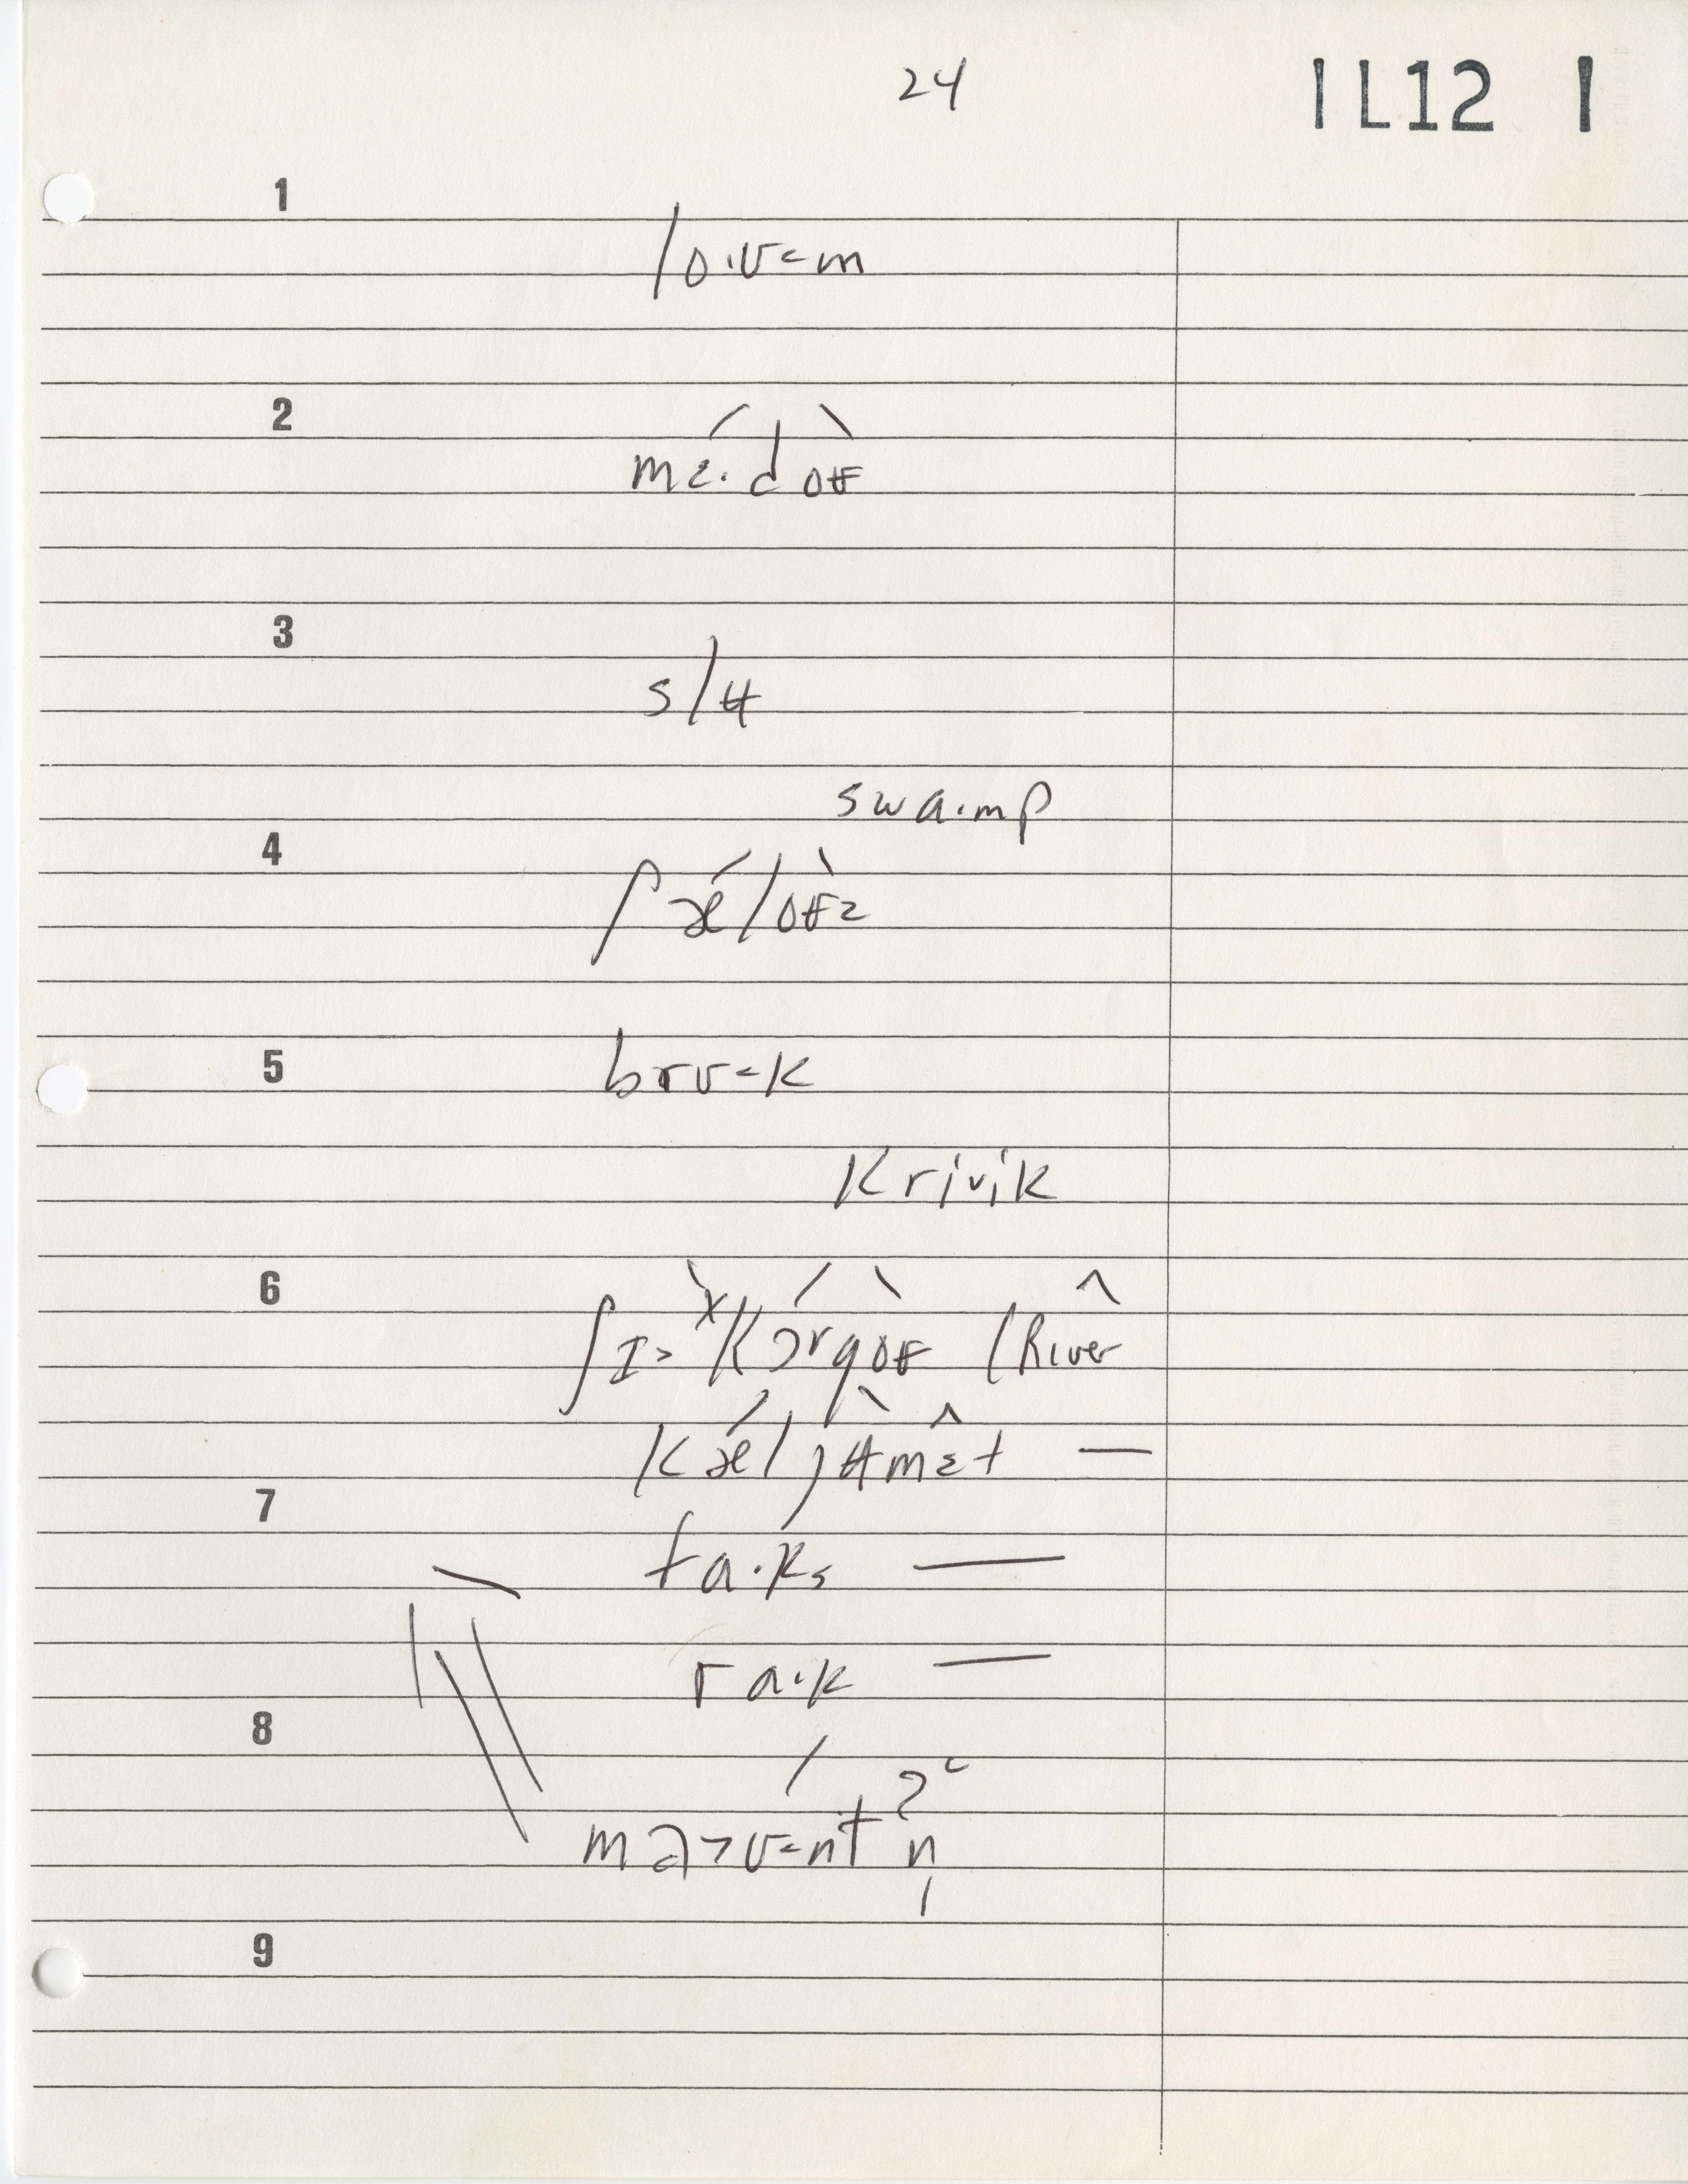 24
IL12 I
1
lo·ʊ˂m
2
mɛ·́doʉ̀
3
slʉ
swa·mp
4
ʃǽloʉ̀z
5
brʊ˂k
krivik
6
ʃɪ˃kɔ́rgoʉ̀ (River
kǽljʉ̀mɛ̂t —
7
ta·ks —
ra·k —
8
8
9